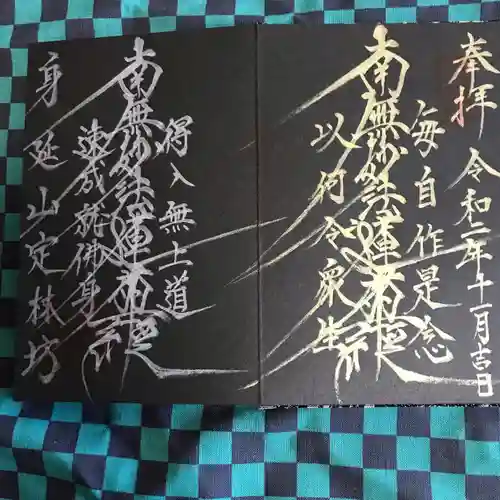 奉拝
令和二年十一月吉日
毎自作是念
南無妙法蓮華経
以何令衆生
得入無上道
南無妙法蓮華経
速成就佛身
身延山定林坊